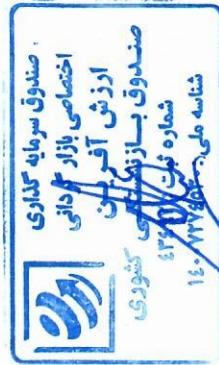 صندوق سرمایه گذاری
اختصاصی بازار گردانی
ارزش آفرین
صندوق بازنشستگی کشوری
شماره ثبت
شناسه ملی